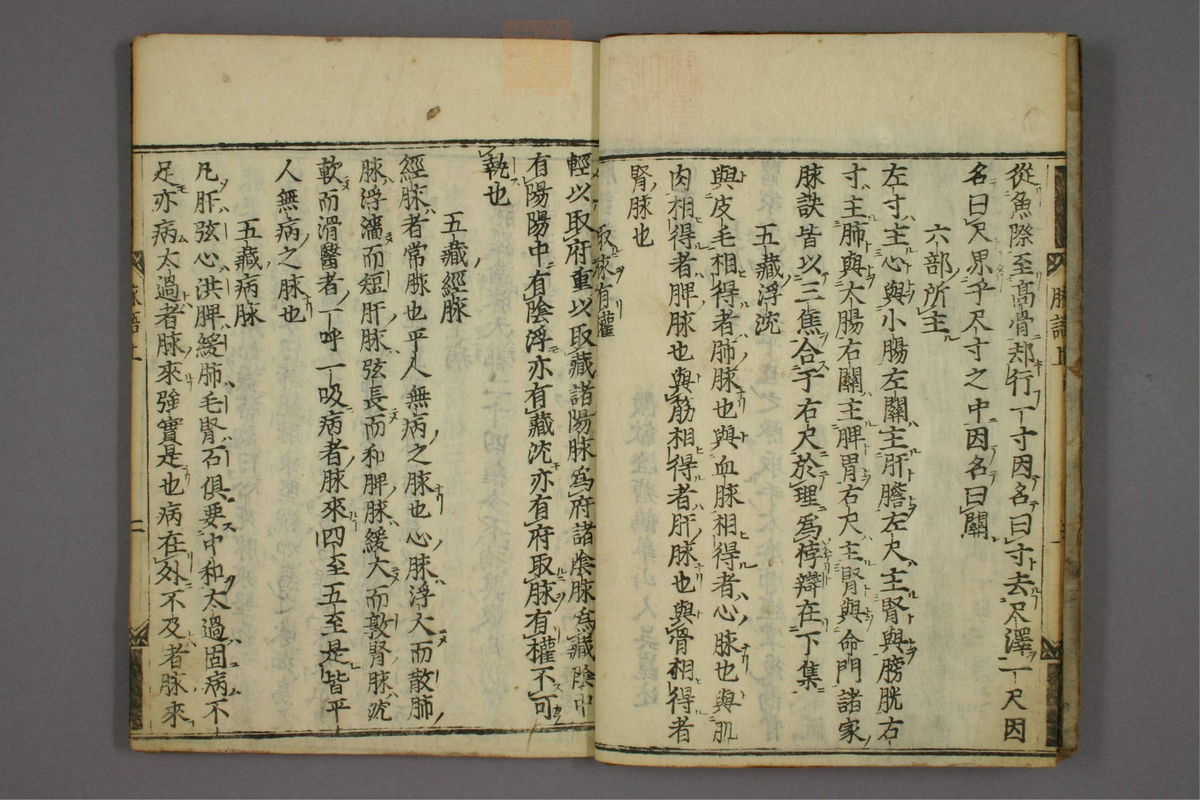 從魚際至高骨却行一寸因名曰寸去尺澤一尺因
名曰尺界乎尺寸之中因名曰關
六部所主
左寸主心與小腸左關主肝膽左尺主腎與膀胱右
寸主肺與大腸右關主脾胃右尺主腎與命門諸家
脉訣皆以三焦合于右尺於理為悖辯在下集
五藏浮沈
與皮毛相得者肺脉也與血脉相得者心脉也與肌
肉相得者脾脉也與筋相得者肝脉也與骨相得者
腎脉也
取脉有權
輕以取府重以取藏諸陽脉爲府諸陰脉爲藏陰中
有陽陽中有陰浮亦有藏沈亦有府取脉有權不可
執也
五藏經脉
經脉者常脉也平人無病之脉也心脉浮大而散肺
脉浮濇而短肝脉弦長而和脾脉緩大而敦腎脉沈
軟而滑醫者一呼一吸病者脉來四至五至是皆平
人無病之脉也
五藏病脉
凡肝弦心洪脾緩肺毛腎石俱要中和太過固病不
足亦病太過者脉來強實是也病在外不及者脉來